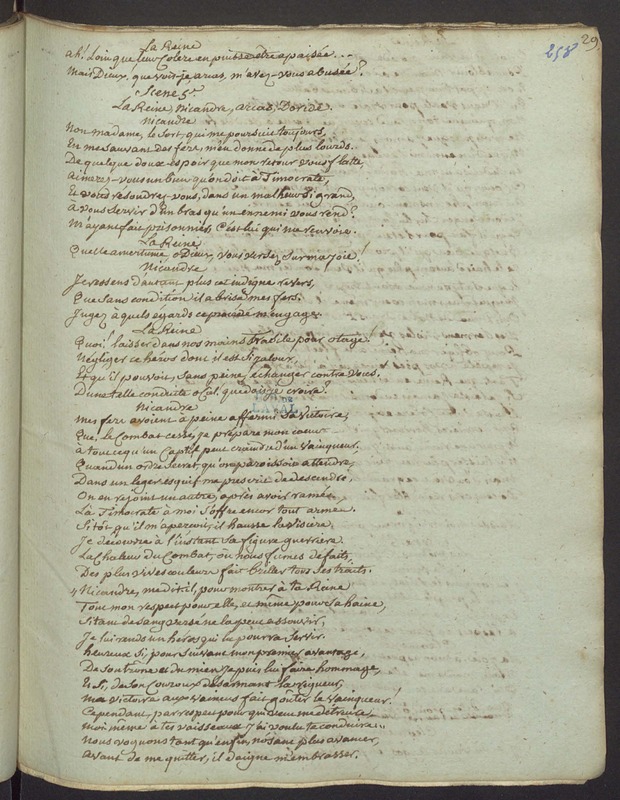 29
258
La Reine
ah! Loin que leur Colere en puisse être apaisée...
Mais Dieux, que vois-je arcas, m'avez-vous abusée?
Scene 5e
La Reine, Nicandre, arcas, Doride.
Nicandre
Non madame, le Sort, qui me poursuit toujours,
En me Sauvant des fers, m'en donne de plus lourds.
De quelque doux espoir que mon retour vous flatte,
aimerez-vous un bien qu'on doit à Timocrate,
Et vous resoudrez-vous, dans un malheur Si grand,
à vous Servir d'un bras qu'un ennemi vous rend?
M'ayant fait prisonnier, C'est lui qui me renvoie.
La Reine
Quelle amertume, o Dieux, vous versez Sur ma joie!
Nicandre
Je ressens d'autant plus cet indigne revers,
Que Sans condition il a brisé mes fers.
Jugez à quels egards ce procédé m'engage.
La Reine
Quoi! laisser dans nos mains Trasile pour otage!
Négliger ce héros dont il est Si jaloux,
Et qu'il pouvoit, Sans peine, échanger contre vous,
D'une telle conduite o Ciel, que dois-je croire?
Nicandre
Mes fers avoient à peine affermi Sa Victoire,
Que, le Combat cessé, je prépare mon coeur
à tout ce qu'un Captif peut craindre d'un Vainqueur.
Quand un ordre Secret, qu'on paroissoit attendre,
Dans un leger esquif me prescrit de descendre,
On en rejoint un autre, après avoir ramé,
Là Timocrate à moi S'offre encor tout armé.
Sitôt qu'il m'aperçoit, il hausse la visiere.
Je découvre à l'instant Sa figure guerriere.
La Chaleur du Combat, où nous fumes défaits,
Des plus vives couleurs fait briller tous Ses traits.
"Nicandre, me dit-il, pour montrer à ta Reine
Tout mon respect pour elle, et même pour Sa haine,
Si tant de Sang versé ne la peut assouvir,
Je lui rends un heros qui la pourra Servir.
heureux Si, poursuivant mon premier avantage,
De Son trone et du mien je puis lui faire hommage,
Et Si, de Son Couroux désarmant la rigueur,
ma Victoire aux Vaincus fait goûter le Vainqueur!
Cependant, par respect pour qui veut me détruire,
moi même à tes vaisseaux j'ai voulu te conduire..
Nous voguons tant qu'enfin, n'osant plus avancer,
avant de me quitter, il daigne m'embrasser.